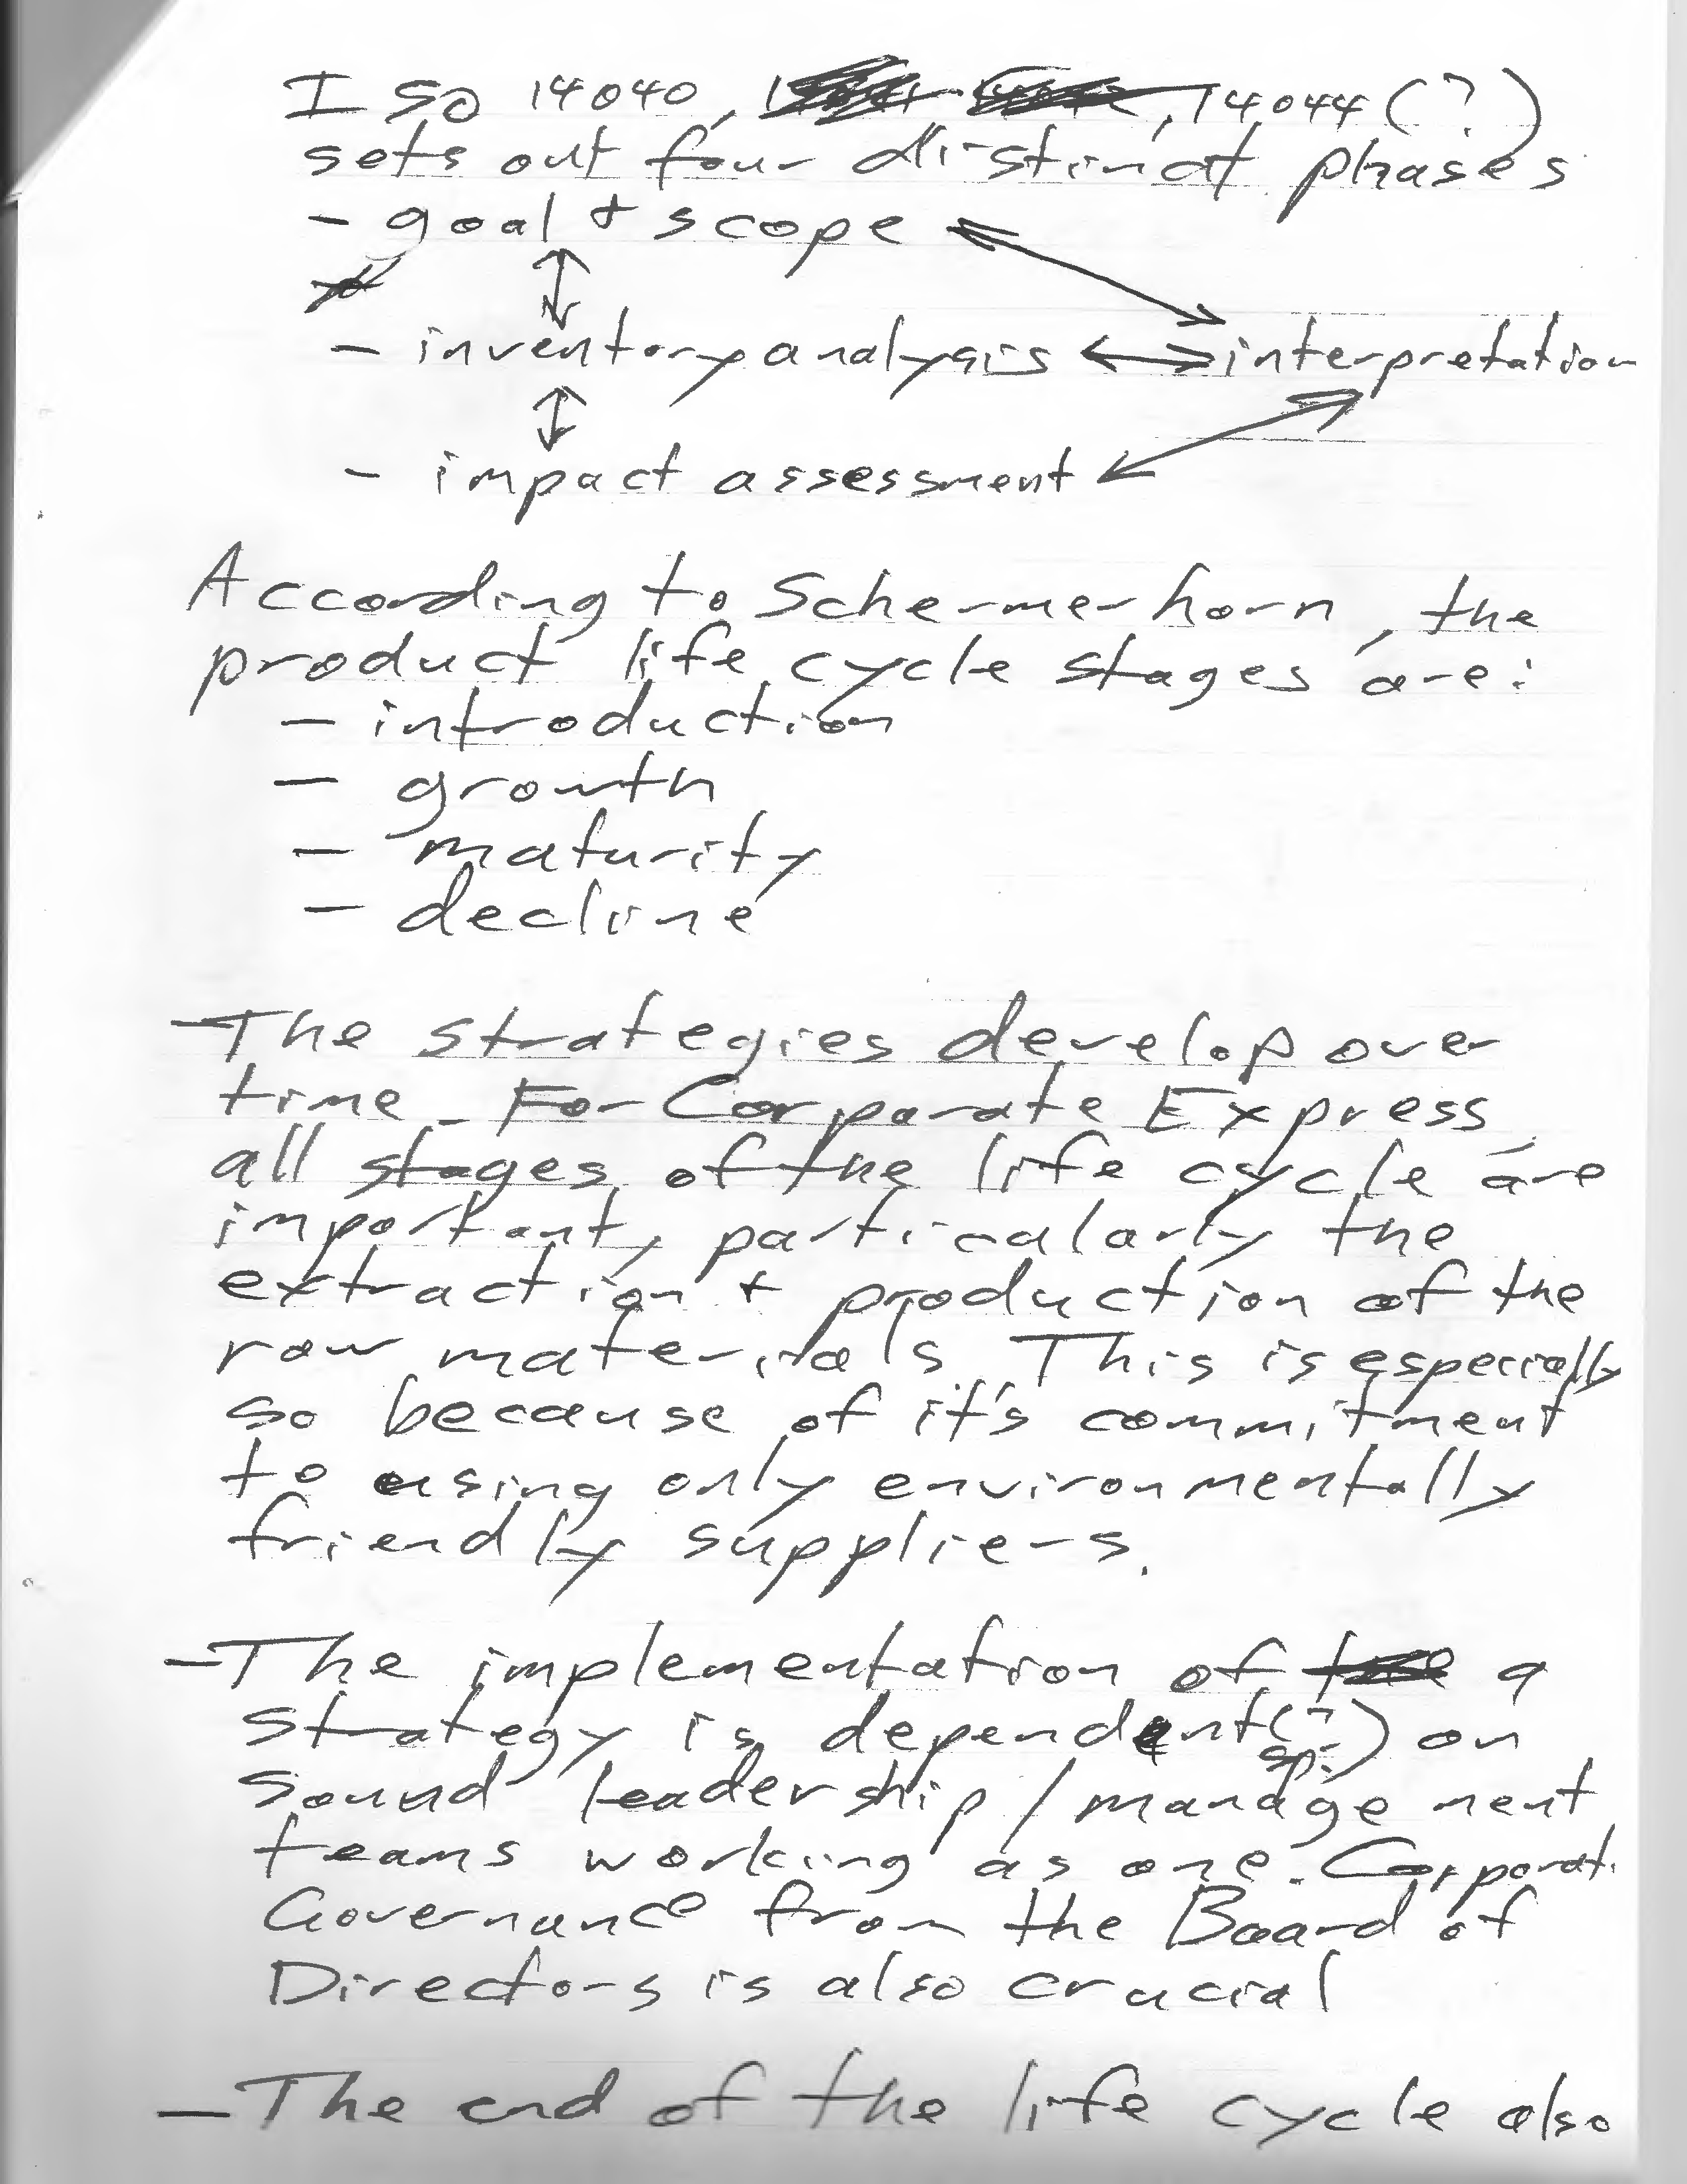 ISO 14040, 14044 (?)
sets out four distinct phases
- goal + scope
- inventory analysis interpretation
- impact assessment
According to Schermerhorn, the
product life cycle stages are:
- introduction
- growth
- maturity
- decline
- The strategies develop over
time. For Corporate Express,
all stages of the life cycle are
important, particularly the
extraction + production of the
raw materials. This is especially
so because of it's commitment
to using only environmentally
friendly suppliers.
- The implementation of a
strategy is dependent (?) on
sp.
sound leadership/management
teams working as one. Corporate
Governance from the Board of
Directors is also crucial
- The end of the life cycle also